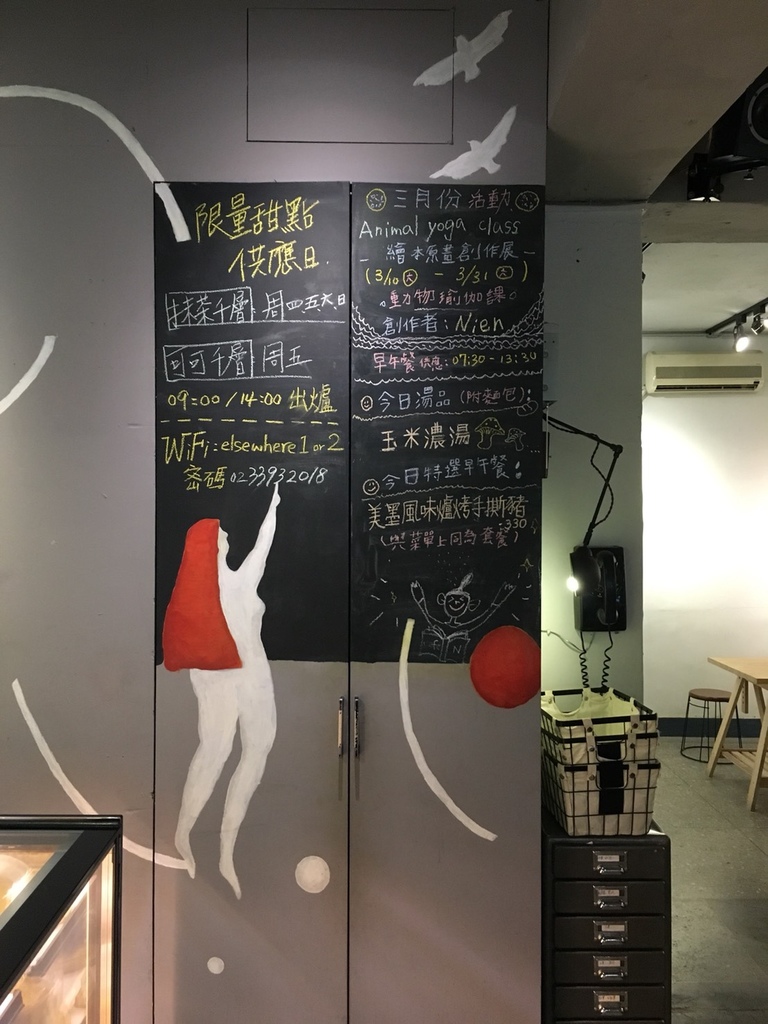 限量甜點
供應日.
抹茶千層 周四五六日
可可千層 周五
09:00 / 14:00 出爐
WiFi: elsewhere 1 or 2
密碼 0233932018
三月份 活動
Animal yoga class
- 繪本原畫創作展 -
(3/10 ㊅ - 3/31 ㊅)
。動物瑜伽課。
創作者: Nien
早午餐 供應: 07:30 - 13:30
今日湯品 (附麵包)
玉米濃湯 ...
今日特選早午餐!
美墨風味爐烤手撕豬
330
(與菜單上同為套餐)